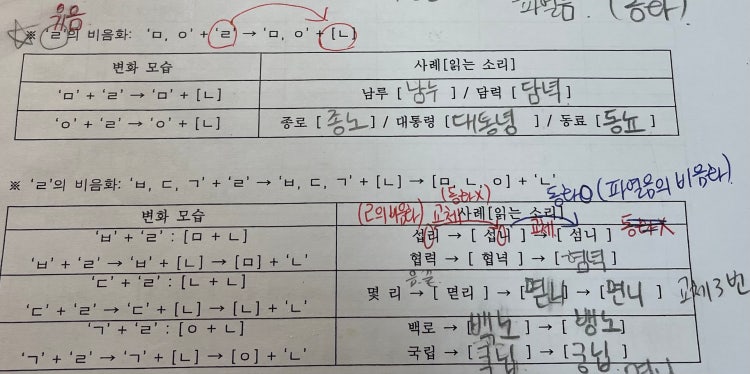 파열음. (동화)
유음
☆※ 'ㄹ'의 비음화: 'ㅁ, ㅇ' + 'ㄹ' → 'ㅁ, ㅇ' + [ㄴ]
변화 모습 사례[읽는 소리]
'ㅁ' + 'ㄹ' → 'ㅁ' + [ㄴ] 남루 [남누] / 담력 [담녁]
'ㅇ' + 'ㄹ' → 'ㅇ' + [ㄴ] 종로 [종노] / 대통령 [대통녕] / 동료 [동뇨]
※ 'ㄹ'의 비음화: 'ㅂ, ㄷ, ㄱ' + 'ㄹ' → 'ㅂ, ㄷ, ㄱ' + [ㄴ] → [ㅁ, ㄴ, ㅇ] + 'ㄴ'
(동화X) 동화O (파열음의 비음화)
(ㄹ의 비음화) 교체
변화 모습 사례[읽는 소리]
'ㅂ' + 'ㄹ' : [ㅁ + ㄴ] 섭리 → [섭니] → [섬니]
교체 동화X
'ㅂ' + 'ㄹ' → 'ㅂ' + [ㄴ] → [ㅁ] + 'ㄴ' 협력 → [협녁] → [혐녁]
'ㄷ' + 'ㄹ' : [ㄴ + ㄴ]
몇 리 → [멷리] → [멷니] → [면니] 교체 3번
'ㄷ' + 'ㄹ' → 'ㄷ' + [ㄴ] → [ㄴ] + 'ㄴ'
'ㄱ' + 'ㄹ' : [ㅇ + ㄴ] 백로 → [백노] → [뱅노]
'ㄱ' + 'ㄹ' → 'ㄱ' + [ㄴ] → [ㅇ] + 'ㄴ' 국립 → [국닙] → [궁닙]